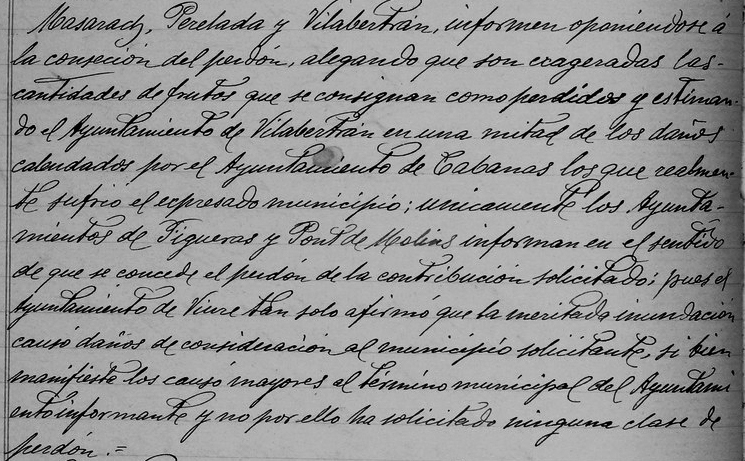 Masarach, Perelada y Vilabertrán, informen oponiendose á
la conseción del perdón, alegando que son exageradas las
cantidades de frutos que se consignan como perdidos y estiman-
do el Ayuntamiento de Vilabertrán en una mitad de los daños
calculados por el Ayuntamiento de Cabanas los que realmen-
te sufrió el expresado municipio; unicamente los Ayunta-
mientos de Figueras y Pont de Molins informan en el sentido
de que se concede el perdón de la contribución solicitado; pues el
Ayuntamiento de Viure tan solo afirmó que la meritada inundación
causó daños de consideración al municipio solicitante, si bien
manifiesta los causó mayores al término municipal del Ayuntami
ento informante y no por ello ha solicitado ninguna clase de
perdón.=